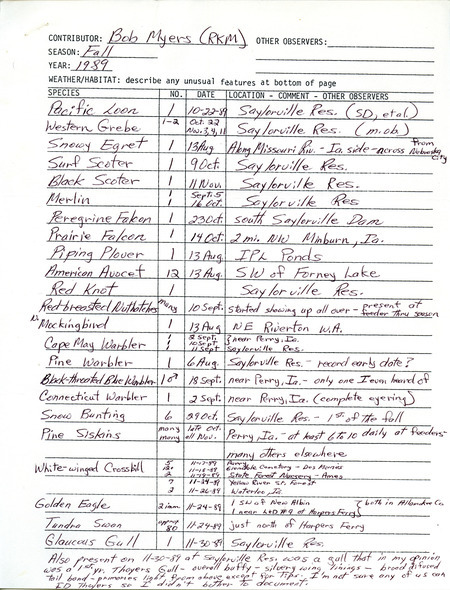 CONTRIBUTOR: Bob Myers (RKM) OTHER OBSERVERS:
SEASON: Fall
YEAR: 1989
WEATHER/HABITAT: describe any unusual features at bottom of page
SPECIES NO. DATE LOCATION - COMMENT - OTHER OBSERVERS
Pacific Loon 1 10-22-89 Saylorville Res. (SD, et al.)
Western Grebe 1-2 Oct. 22 Nov. 3, 9, 11 Saylorville Res. (m.ob.)
Snowy Egret 1 13 Aug Along Missouri Riv. - Ia. side - across from Nebraska City
Surf Scoter 1 9 Oct. Saylorville Res.
Black Scoter 1 11 Nov. Saylorville Res.
Merlin 1 Sept. 5 Saylorville Res
1 16 Oct.
Peregrine Falcon 1 23 Oct. south Saylorville Dam
Prairie Falcon 1 14 Oct. 2 mi. NW Minburn, Ia.
Piping Plover 1 13 Aug. IPL Ponds
American Avocet 12 13 Aug. SW of Forney Lake
Red Knot 1 Saylorville Res.
Red-breasted Nuthatches many 10 Sept. started showing up all over - present at feeder thru season
N. Mockingbird 1 13 Aug NE Riverton W.A.
Cape May Warbler 1 2 Sept. } near Perry, Ia.
1 10 Sept.
1 11 Sept Saylorville Res.
Pine Warbler 1 6 Aug. Saylorville Res. - record early date?
Black-throated Blue Warbler 1♂ 18 Sept. near Perry, Ia. - only one I even heard of
Connecticut Warbler 1 2 Sept. near Perry, Ia. (complete eyering)
Snow Bunting 6 29 Oct. Saylorville Res. - 1st of the fall
Pine Siskins many late Oct. Perry, Ia. - at least 6 to 10 daily at feeders
many all Nov.
many others elsewhere
White-winged Crossbill 5 11-17-89 Perry
11-18-89 Glendale Cemetery - Des Moines
2 11-19-89 State Forest Nursery - Ames
7 11-24-89 Yellow River St. Forest
2 11-26-89 Waterloo, Ia.
Golden Eagle 2 imm. 11-24-89 1 SW of New Albin } both in Allamakee Co.
1 near L&D #9 of Harpers Ferry
Tundra Swan approx 80 11-24-89 just north of Harpers Ferry
Glaucous Gull 1 11-30-89 Saylorville Res.
Also present on 11-30-89 at Saylorville Res. was a gull that in my opinion
was a 1st yr. Thayers Gull - overall buffy - silvery wing linings - broad diffused
tail band - primaries light from above except for tips. I'm not sure any of us can
ID Thayers so I didn't bother to document.